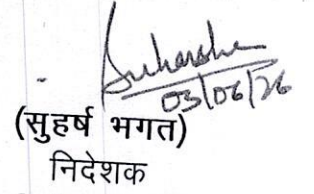 Suharsha
03/06/26
(सुहर्ष भगत)
निदेशक